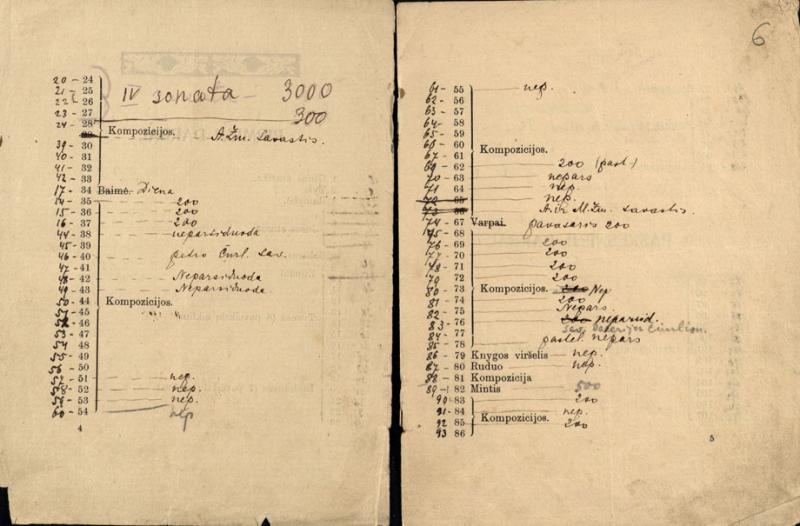 20 - 24
21 - 25
IV sonata - 3000
22 - 26
23 - 27
300
24 - 28
29 Kompozicijos. A. Žm. savastis.
39 - 30
40 - 31
41 - 32
42 - 33
17 - 34 Baimė. Diena
14 - 35 200
15 - 36 200
16 - 37 200
44 - 38 neparsiduoda
45 - 39
46 - 40 petro Čurl. sav.
47 - 41
48 - 42 Neparsiduoda
49 - 43 Neparsiduoda.
50 - 44 Kompozicijos.
51 - 45
52 - 46
53 - 47
54 48
55 - 49
56 - 50
57 - 51 nep.
58 - 52 nep.
59 - 53 nep.
60 - 54 nep
4
6
61 - 55 nep.
62 - 56
63 - 57
64 - 58
65 - 59
66 - 60 Kompozicijos.
67 - 61
69 - 62 200 (past.)
70 - 63 nepars
71 64 nep.
72 - 65 nep.
73 - 66 A. ir M. Žm. savastis.
74 - 67 Varpai. pavasaris 200
75 - 68
76 - 69 200
77 - 70 200
78 - 71 200
79 72 200
80 - 73 Kompozicijos. 200 Nep
81 - 74 200
82 - 75 Nepars.
83 - 76 200 neparsid.
84 - 77
85 - 78 pastel. nepars
86 - 79 Knygos viršelis nep.
87 - 80 Ruduo nep.
88 - 81 Kompozicija
89 - 82 Mintis 500
90 - 83 200
91 - 84 nep.
92 - 85 Kompozicijos. 200
93 86
5